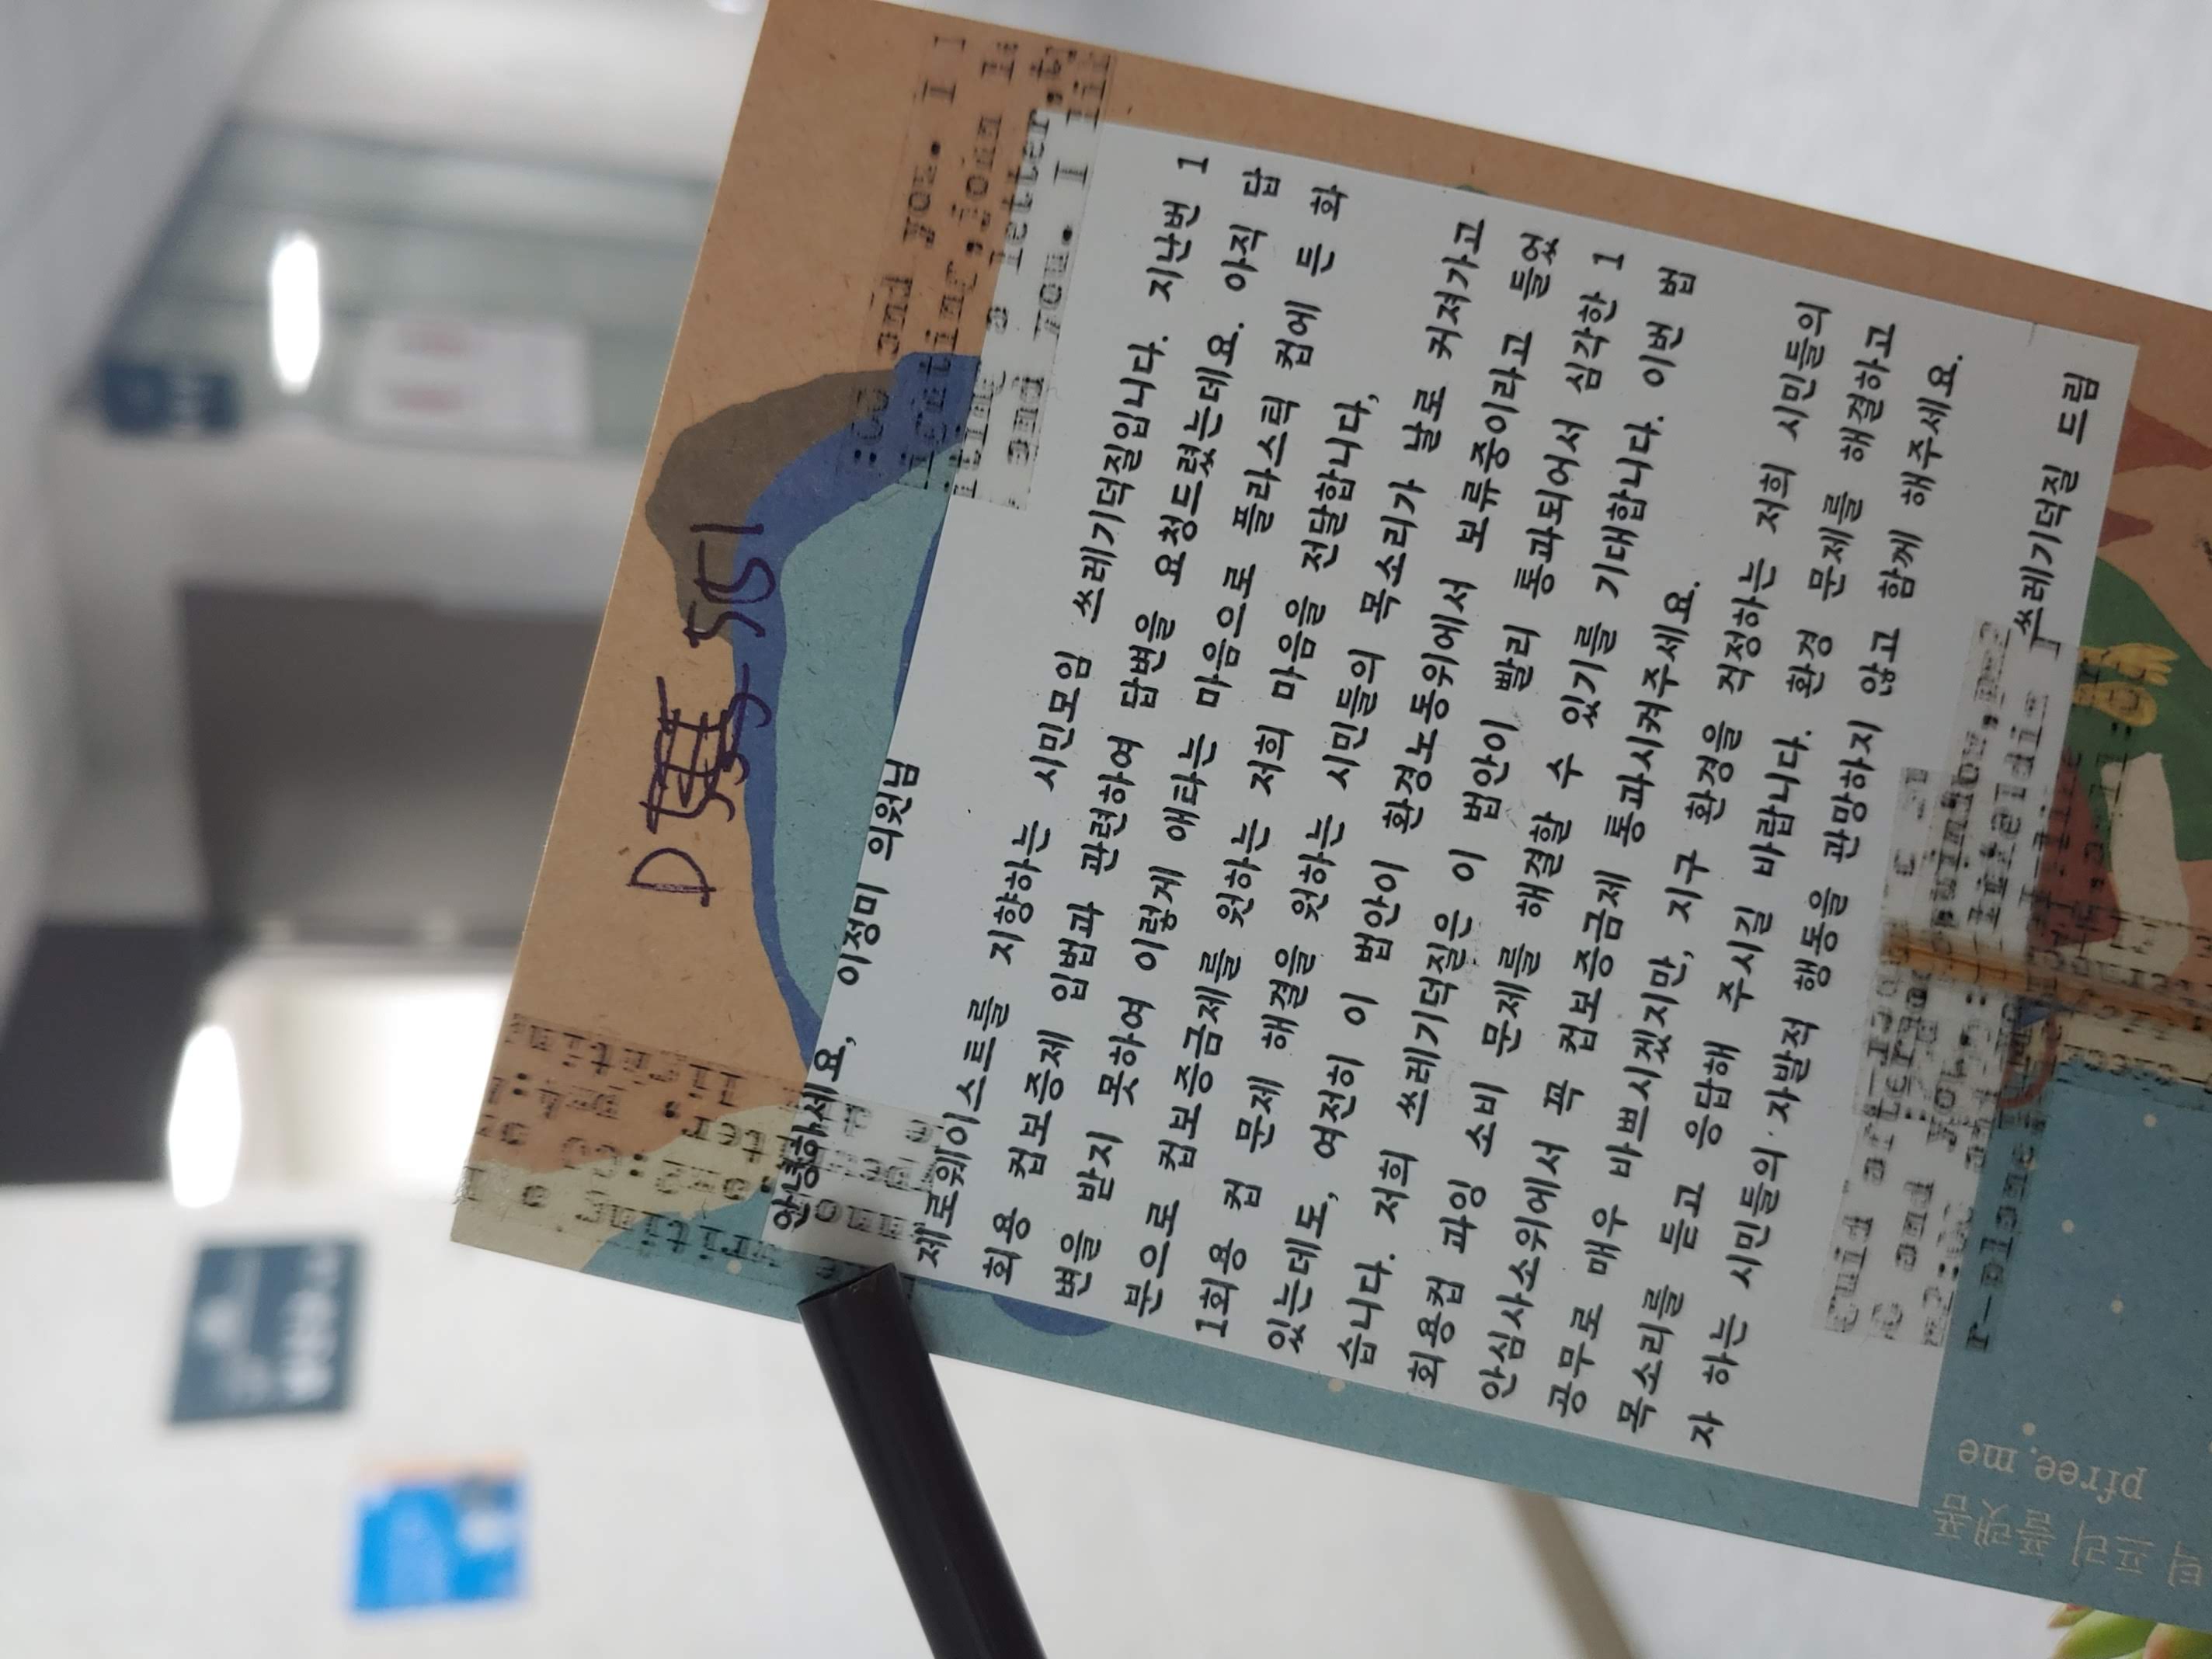 안녕하세요, 이정미 의원님
제로웨이스트를 지향하는 시민모임 쓰레기덕질입니다. 지난번 1
회용 컵보증제 입법과 관련하여 답변을 요청드렸는데요. 아직 답
변을 받지 못하여 이렇게 애타는 마음으로 플라스틱 컵에 든 화
분으로 컵보증금제를 원하는 저희 마음을 전달합니다,
1회용 컵 문제 해결을 원하는 시민들의 목소리가 날로 커져가고
있는데도, 여전히 이 법안이 환경노동위에서 보류중이라고 들었
습니다. 저희 쓰레기덕질은 이 법안이 빨리 통과되어서 심각한 1
회용컵 과잉 소비 문제를 해결할 수 있기를 기대합니다. 이번 법
안심사소위에서 꼭 컵보증금제 통과시켜주세요.
공무로 매우 바쁘시겠지만, 지구 환경을 걱정하는 저희 시민들의
목소리를 듣고 응답해 주시길 바랍니다. 환경 문제를 해결하고
자 하는 시민들의 자발적 행동을 관망하지 않고 함께 해주세요.
쓰레기덕질 드림
프리 플랫폼
pfree.me